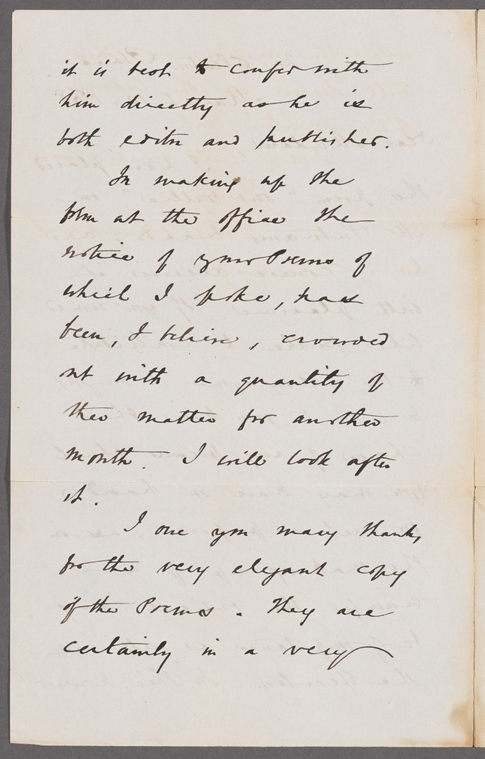 it is best to confer with
him directly as he is
both editor and publisher.
In making up the
form at the office the
notice of your Poems of
which I spoke, has
been, I believe, crowded
out with a quantity of
other matter for another
month. I will look after
it.
I owe you many thanks
for the very elegant copy
of the Poems. They are
certainly in a very